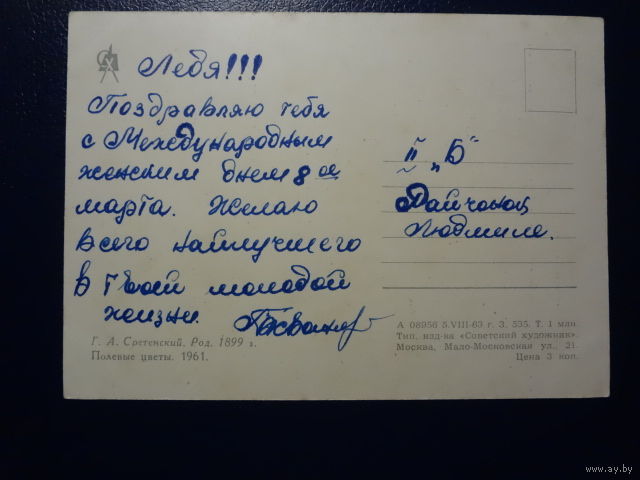 Ледя!!!
Поздравляю тебя
с Международным
женским днем 8ое
марта. Желаю
всего наилучшего
в твоей молодой
жизни.
Г. А. Сретенский. Род. 1899 г.
Полевые цветы. 1961.
II „Б"
Людмиле.
А 08956 5.VIII-63 г. З. 535. Т. 1 млн.
Тип. изд-ва «Советский художник».
Москва, Мало-Московская ул., 21.
Цена 3 коп.
www.ay.by